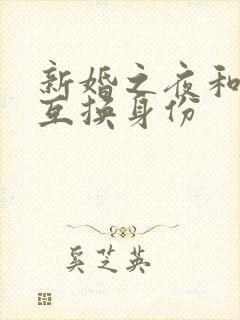 新婚之夜和
互换身份
奚芝英